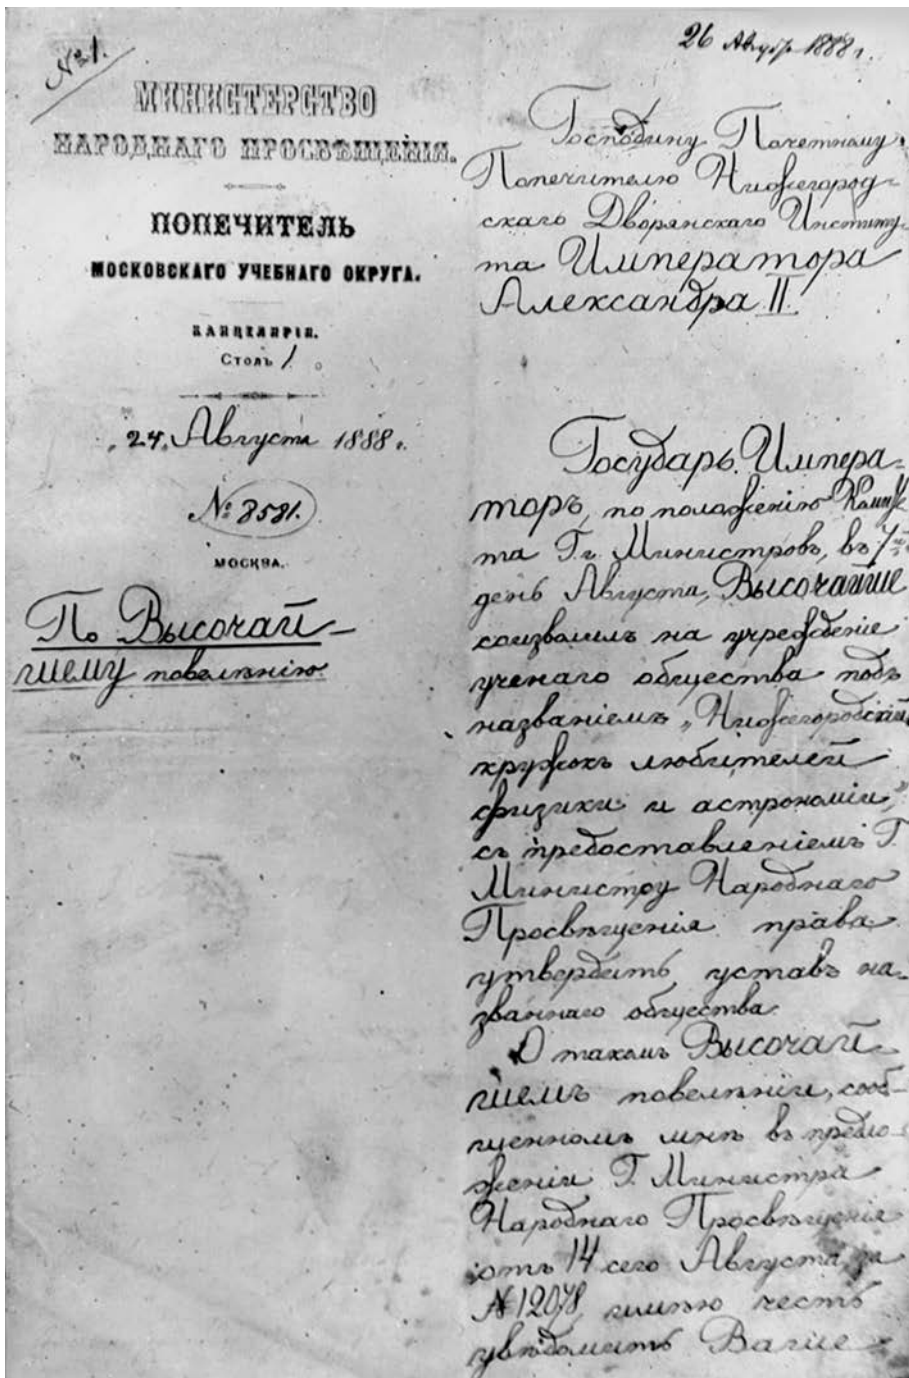 №1.
МИНИСТЕРСТВО
НАРОДНАГО ПРОСВѢЩЕНІЯ.
ПОПЕЧИТЕЛЬ
МОСКОВСКАГО УЧЕБНАГО ОКРУГА.
КАНЦЕЛЯРІЯ.
Столъ 1.
„24„ Августа 1888 г.
№ 8581.
МОСКВА.
По Высочай-
шему повелѣнію.
26 Август 1888 г.
Господину Почетному
Попечителю Нижегород-
скаго Дворянскаго Институ-
та Императора
Александра II.
Государь Импера-
торъ, по положенію Комите
та Г.г. Министровъ, въ 7й
день Августа, Высочайше
соизволилъ на учрежденіе
ученаго общества подъ
названіемъ „Нижегородскій
кружокъ любителей
физики и астрономіи,"
съ предоставленіемъ Г.
Министру Народнаго
Просвѣщенія права
утвердить уставъ на-
званнаго общества.
О такомъ Высочай-
шемъ повелѣніи, сооб-
щенномъ мнѣ въ предло-
женіи Г. Министра
Народнаго Просвѣщенія
отъ 14 сего Августа за
№12078, имѣю честь
увѣдомить Ваше